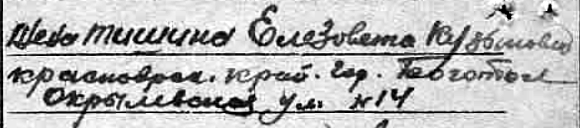 Шевотишина Елезовета Кузьмовна
красноярск. край. гор. Боготол
Окрылевская ул. н 14